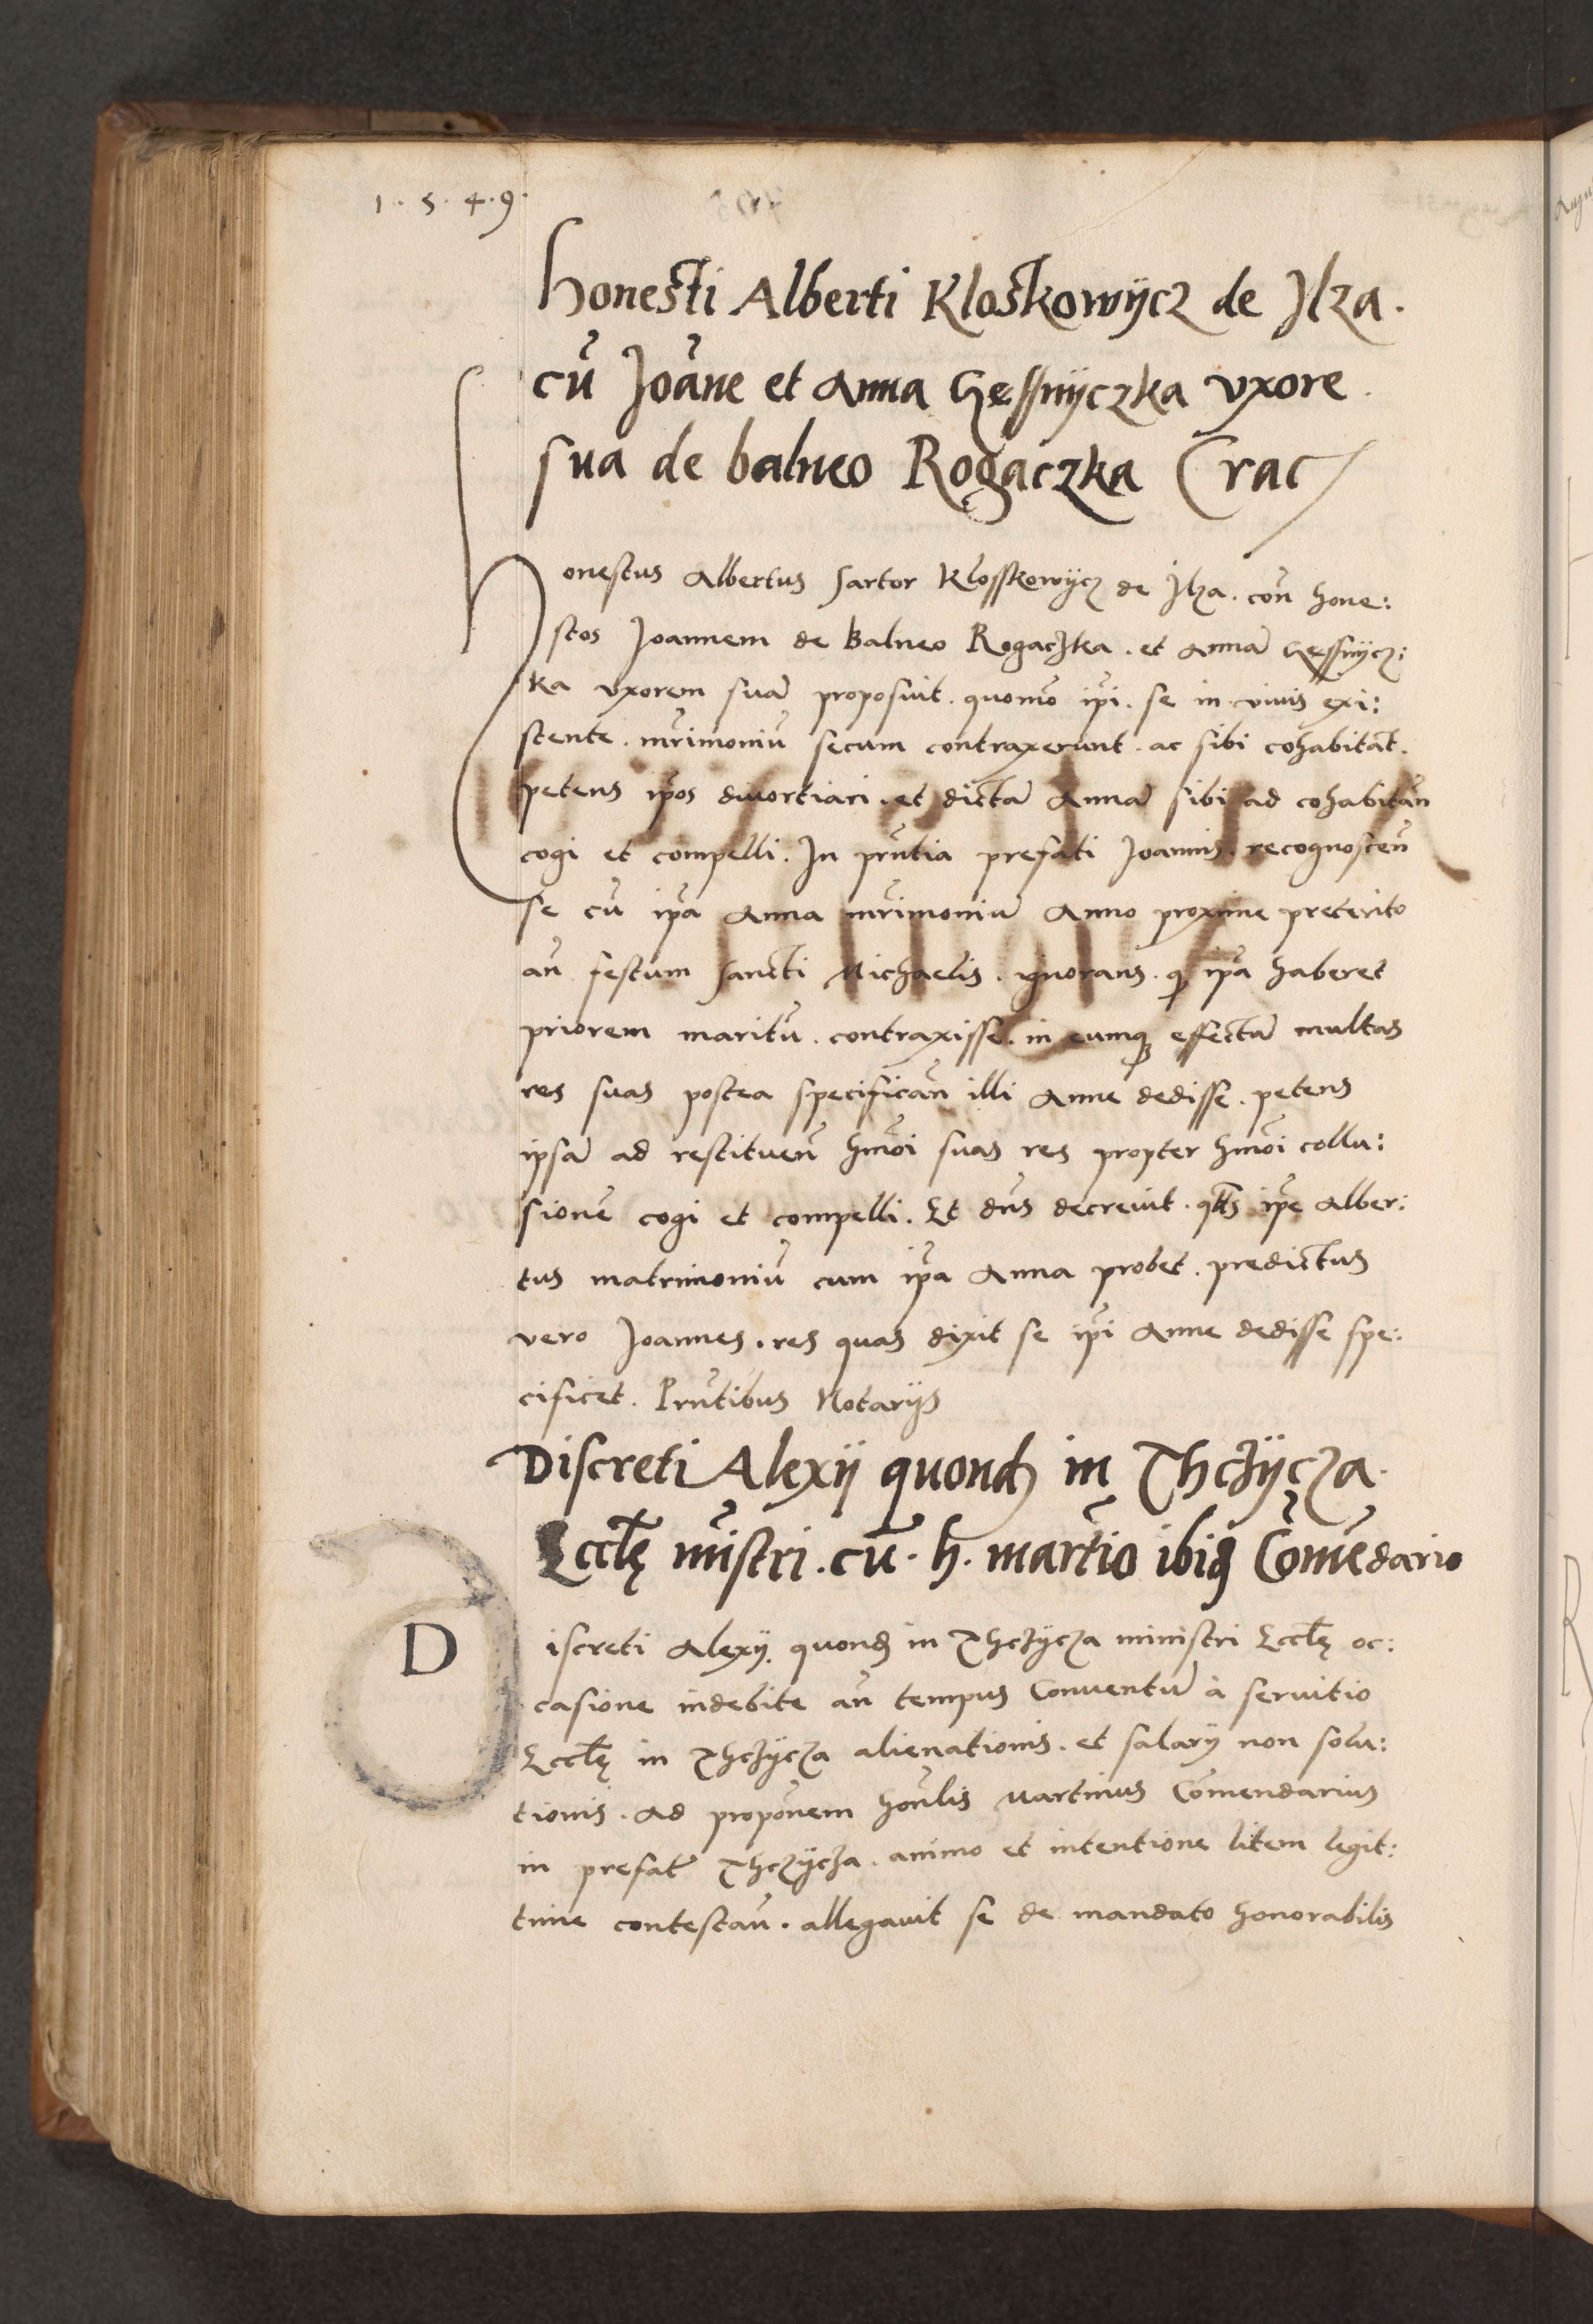 1·5·4·9·
honesti Alberti Kloskowÿcz de Jlza.
cũ Joãne et Anna Gęssnÿczka vxore
sua de balneo Rogaczka Crac
Honestus Albertus sartor Klosskowÿcz de Jlza. coñ hone:
stos Joannem de Balneo Rogaczka. et Annã Gęssnÿcz:
ka vxorem suã proposuit. quomõ ip̃i. se in viuis exi:
stente. mr̃imoniũ secum contraxerunt. ac sibi cohabitãt.
petens ip̃os diuortiari. et dictã Annã sibi ad cohabitañ
cogi et compelli. In pñtia prefati Joannis. recognosceñ
se cũ ip̃a Anna mr̃imoniũ Anno proxime preterito
añ festum sancti Michaelis. ignorans. ꝙ ip̃a haberet
priorem maritũ. contraxisse. in eumqꝫ effectã multas
res suas postea specificañ illi Anne dedisse. petens
ipsã ad restitueñ hm̃oi suas res propter hm̃oi collu:
sionẽ cogi et compelli. Et dñs decreuit. qt̃s ip̃e Alber:
tus matrimoniũ cum ip̃a Anna probet. predictus
vero Joannes. res quas dixit se ip̃i Anne dedisse spe:
cificet. Pñtibus Notarÿs
Discreti Alexÿ quond in Thczÿcza.
Eccl̃ę mĩstri. cũ. h. martĩo ibiqꝫ Com̃ẽdario
Discreti Alexÿ. quond in Thczÿcza ministri Eccl̃ę oc:
casione indebite añ tempus Conuentũ à seruitio
Eccl̃ę in Thczÿcza alienationis. et salarÿ non solu:
tionis. Ad propõnem hoñlis Martinus Com̃endarius
in prefat̃ Thczÿcza. animo et intentione litem legit:
time contestañ. allegauit se de mandato honorabilis